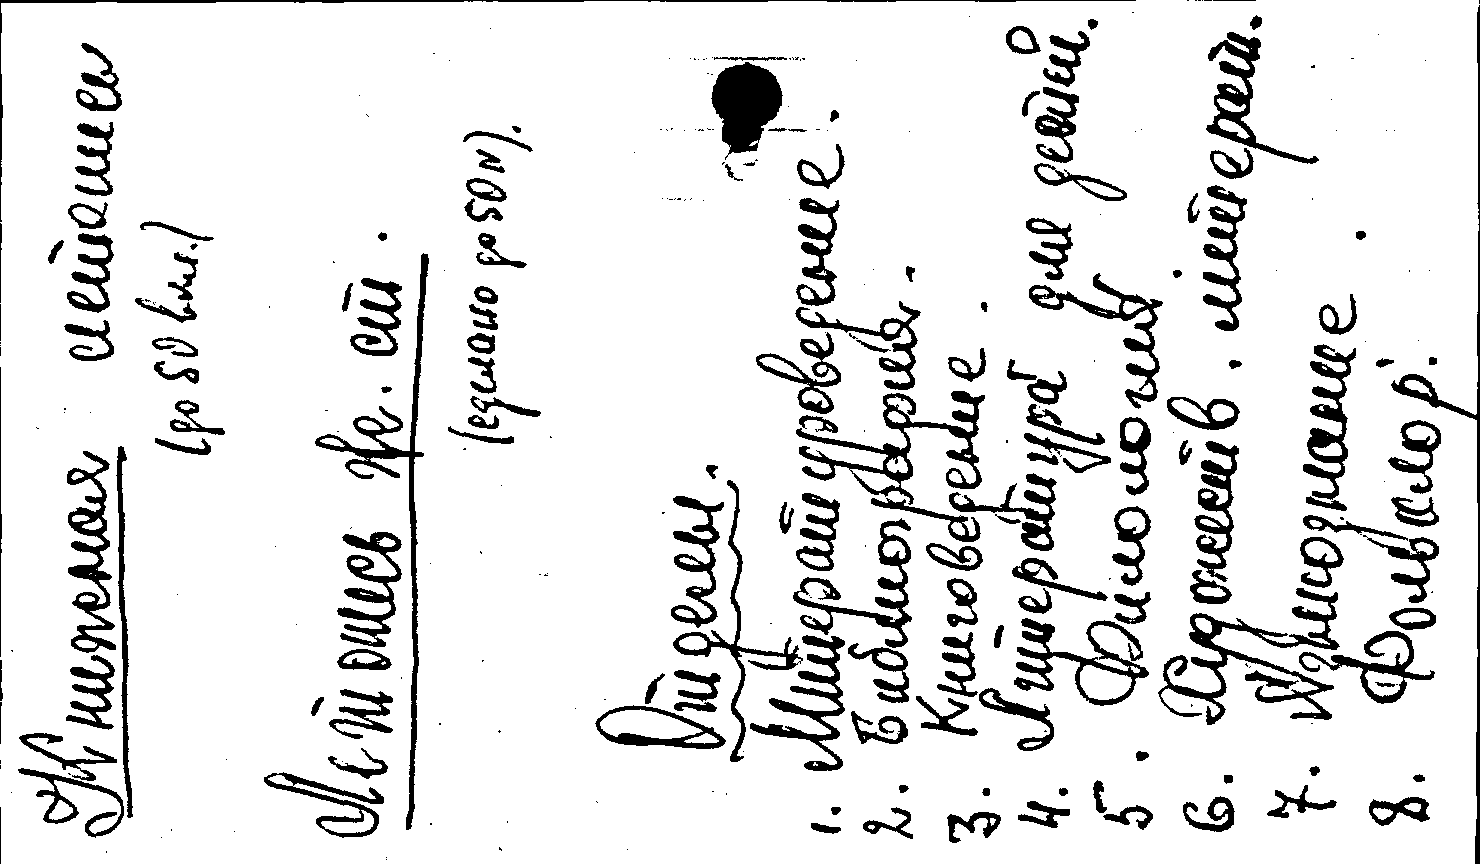 Книжная летопись
(до 50 вкл.)
Летопись Же. ст.
(сделано до 50 N).
Отделы.
1. Литературоведение.
2. Библиография.
3. Книговедение.
4. Литература для детей.
5. Филология
6. Художеств. литерат.
7. Языкознание.
8. Фольклор.